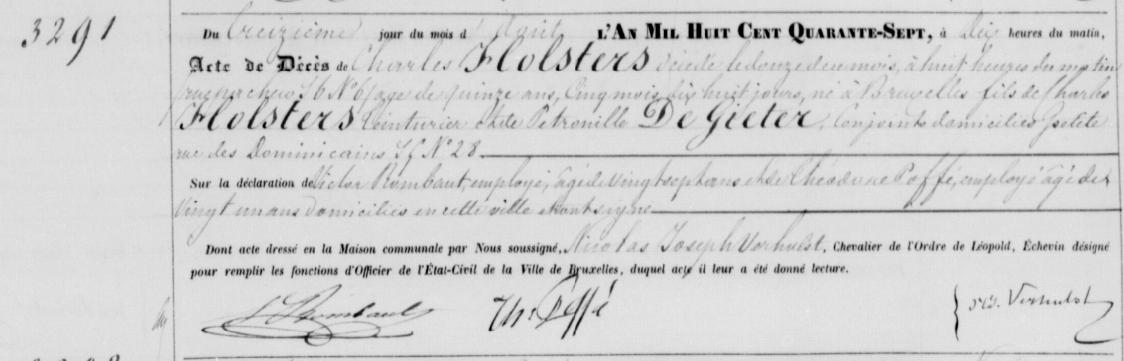 3291
Du treizième jour du mois d'Août L'AN MIL HUIT CENT QUARANTE-SEPT, à Dix heures du matin,
Acte de Décès de Charles Holsters décédé le douze de ce mois, à huit heures du matin
rue pacheco S6 N°6, âgé de quinze ans, Cinq mois, dix huit jours, né à Bruxelles fils de Charles
Holsters Teinturier et de Pétronille De Gieter, Conjoints domiciliés petite
rue des Dominicains S5 N°28
Sur la déclaration de Victor Rombaut, employé, âgé de Vingt sept ans et de Théodore Poffé, employé âgé de
Vingt un ans domiciliés en cette ville et ont signé
Dont acte dressé en la Maison communale par Nous soussigné, Nicolas Joseph Verhulst, Chevalier de l'Ordre de Léopold, Échevin désigné
pour remplir les fonctions d'Officier de l'État-Civil de la Ville de Bruxelles, duquel acte il leur a été donné lecture.
Rombaut Th. Poffé Verhulst